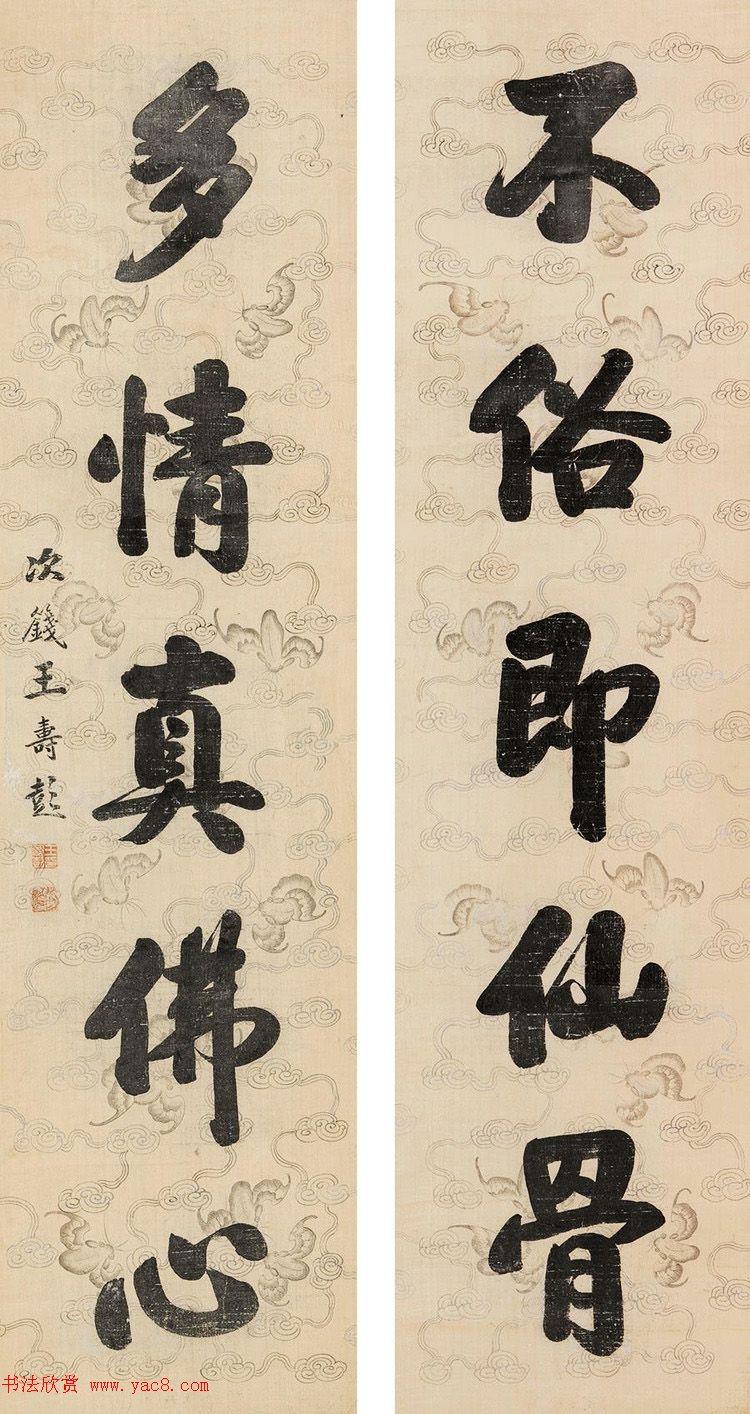 不俗即仙骨
多情真佛心
次籛王壽彭
书法欣赏 www.yac8.com